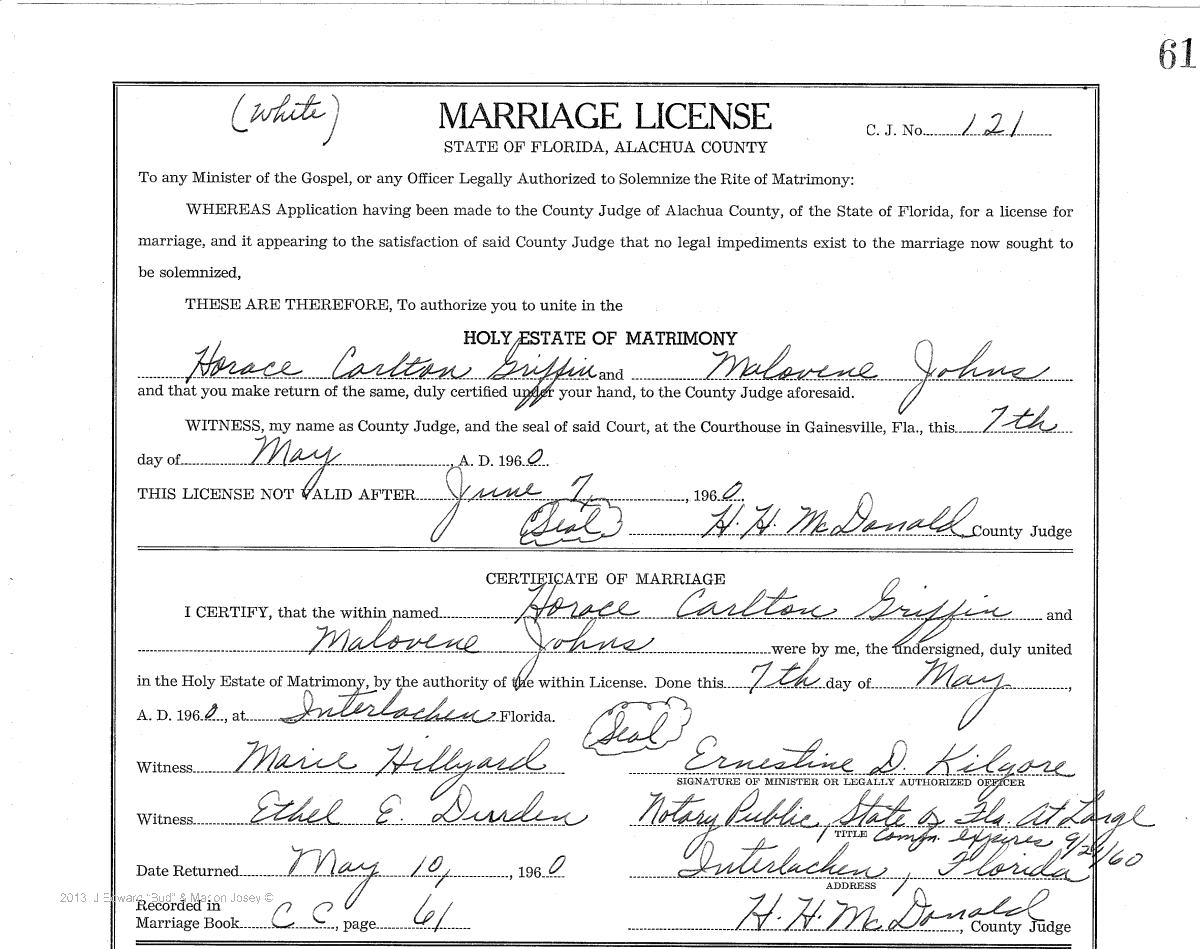 61
(White)
MARRIAGE LICENSE
C. J. No. 121
STATE OF FLORIDA, ALACHUA COUNTY
To any Minister of the Gospel, or any Officer Legally Authorized to Solemnize the Rite of Matrimony:
WHEREAS Application having been made to the County Judge of Alachua County, of the State of Florida, for a license for
marriage, and it appearing to the satisfaction of said County Judge that no legal impediments exist to the marriage now sought to
be solemnized,
THESE ARE THEREFORE, To authorize you to unite in the
HOLY ESTATE OF MATRIMONY
Horace Carlton Griffin and Malovene Johns
and that you make return of the same, duly certified under your hand, to the County Judge aforesaid.
WITNESS, my name as County Judge, and the seal of said Court, at the Courthouse in Gainesville, Fla., this 7th
day of May, A. D. 1960.
THIS LICENSE NOT VALID AFTER June 7, , 1960.
(Seal) H. H. McDonald County Judge
CERTIFICATE OF MARRIAGE
I CERTIFY, that the within named Horace Carlton Griffin and
Malovene Johns were by me, the undersigned, duly united
in the Holy Estate of Matrimony, by the authority of the within License. Done this 7th day of May,
A. D. 1960, at Interlachen Florida.
(Seal)
Witness Marie Hillyard
Ernestine D. Kilgore
SIGNATURE OF MINISTER OR LEGALLY AUTHORIZED OFFICER
Witness Ethel E. Durden
Notary Public, State of Fla. At Large
TITLE Comm. expires 9/24/60
Date Returned May 10, , 1960
Interlachen, Florida
ADDRESS
2013 J Edward "Bud" & Marion Josey ©
Recorded in
Marriage Book C C, page 61
H. H. McDonald, County Judge